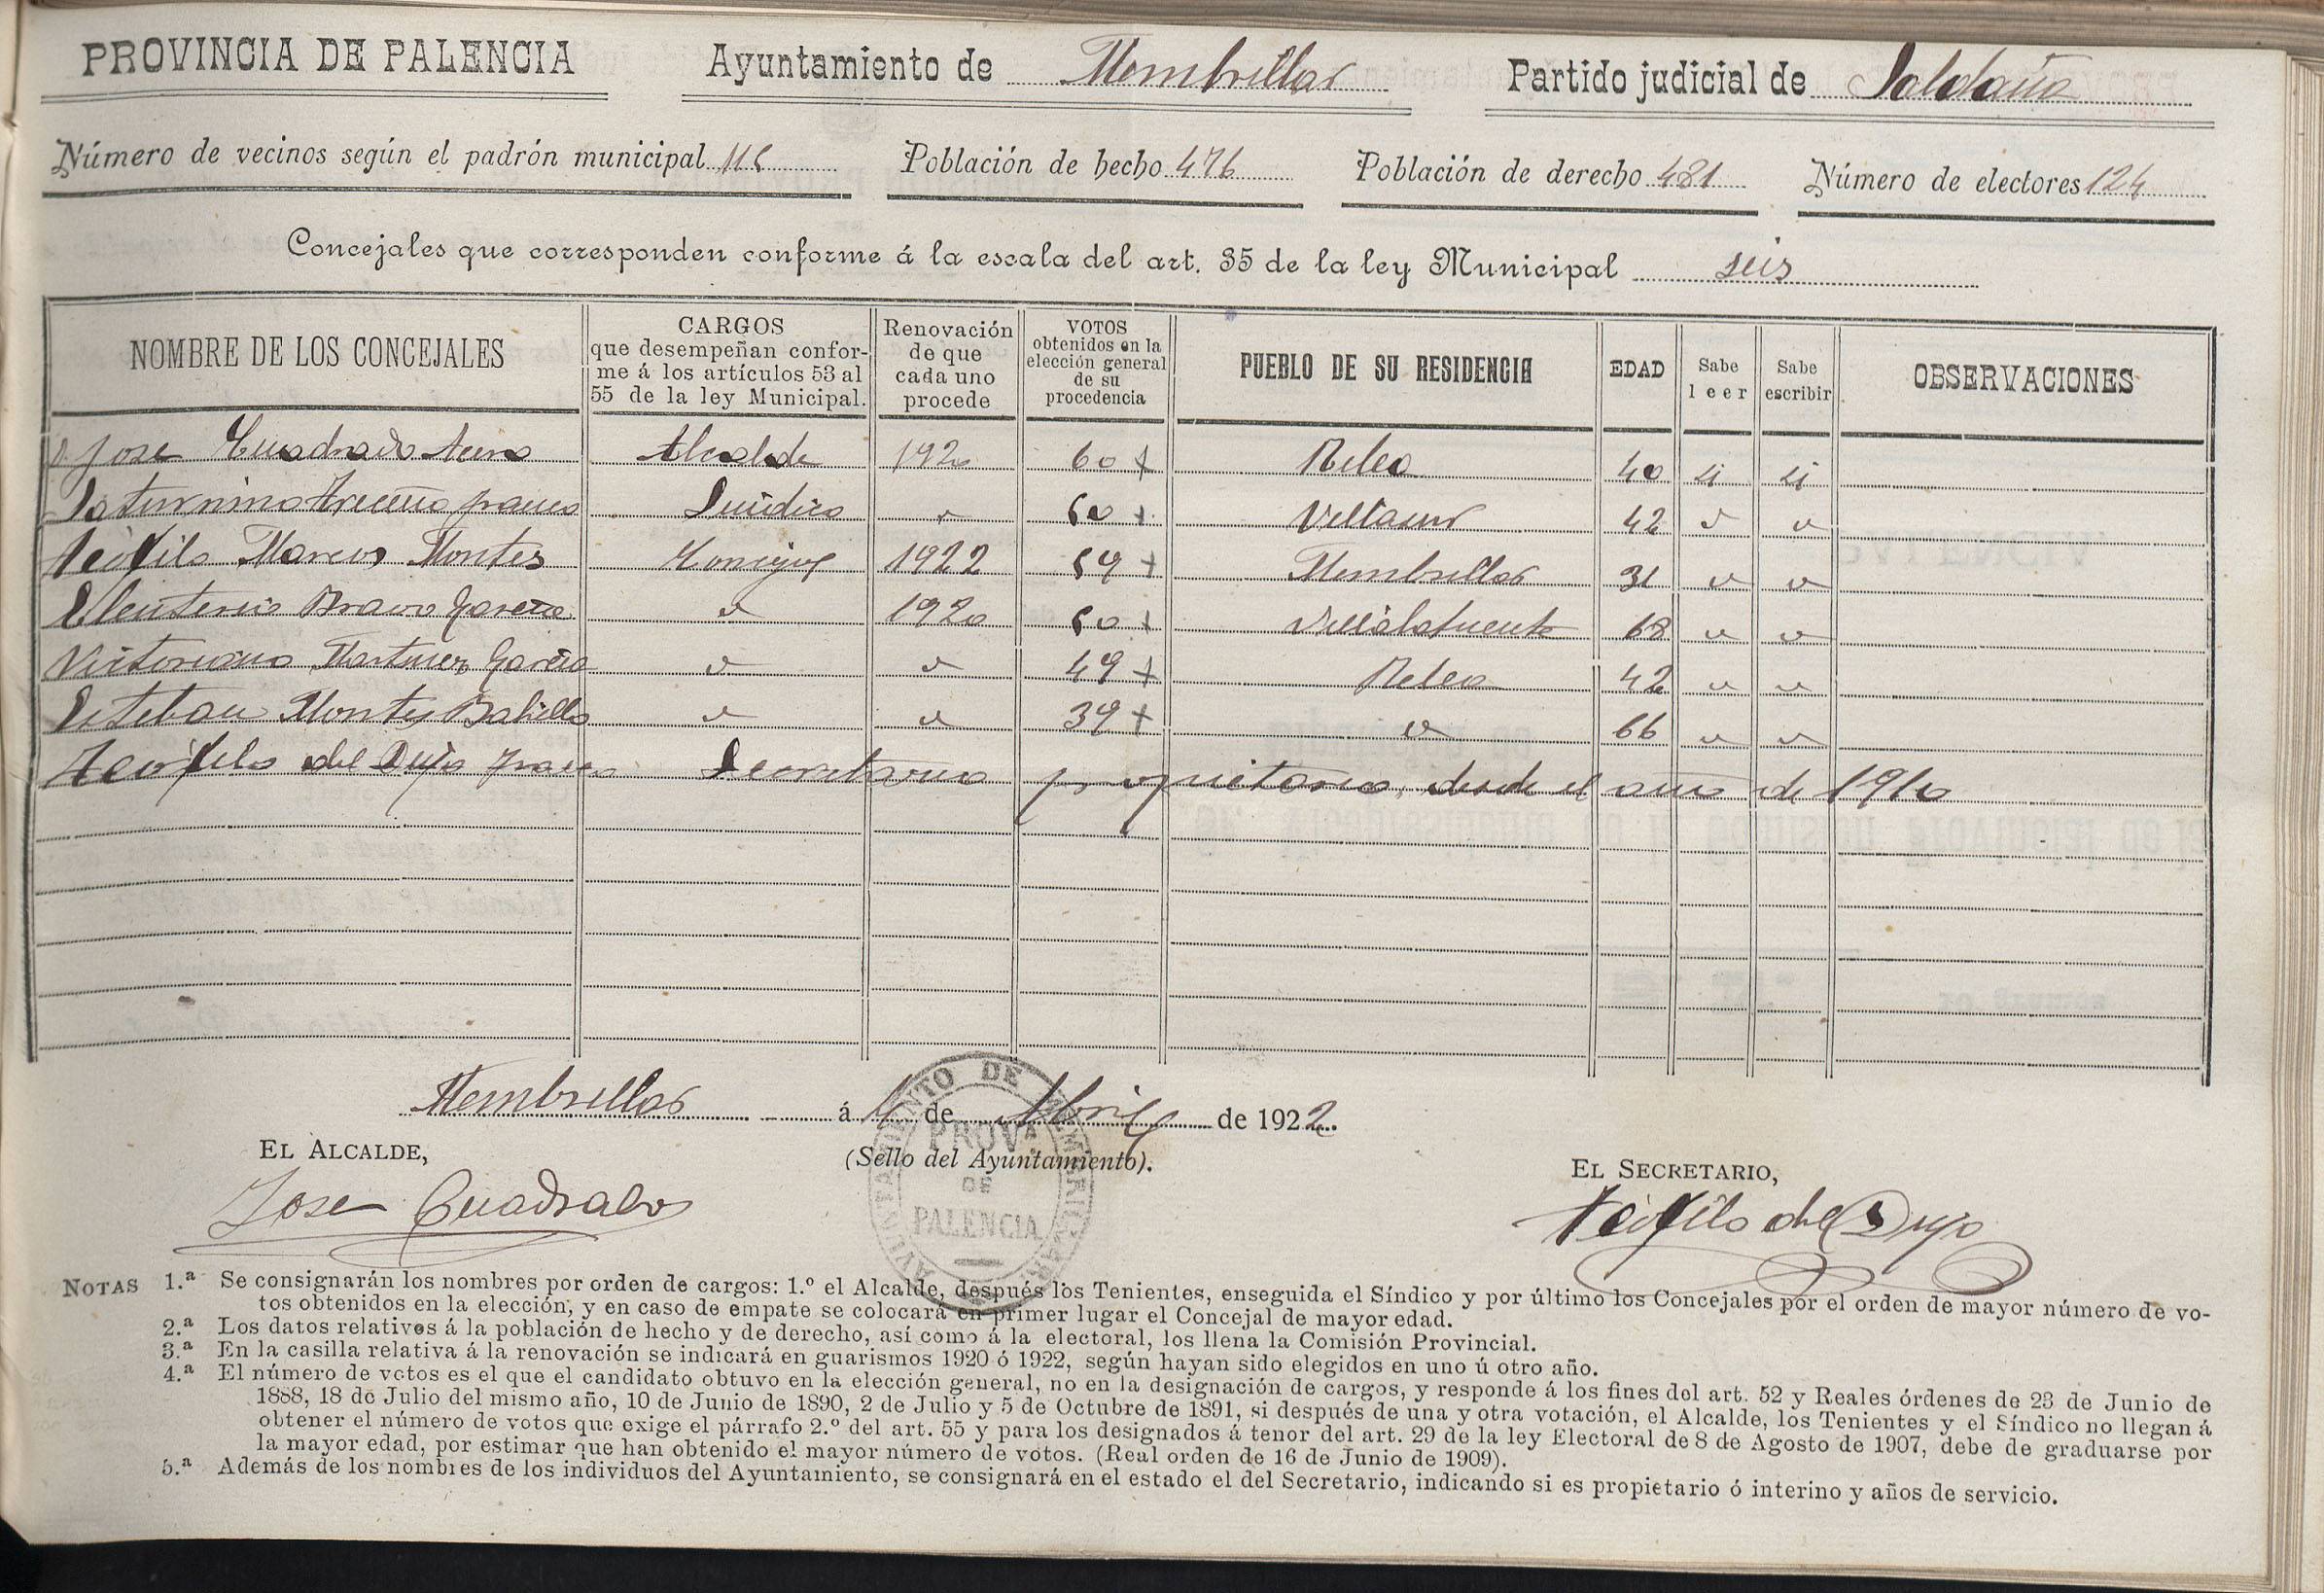 PROVINCIA DE PALENCIA Ayuntamiento de Membrillar Partido judicial de Saldaña
Número de vecinos según el padrón municipal 116 Población de hecho 476 Población de derecho 481 Número de electores 124
Concejales que corresponden conforme á la escala del art. 35 de la ley Municipal seis
NOMBRE DE LOS CONCEJALES CARGOS que desempeñan conforme á los artículos 53 al 55 de la ley Municipal. Renovación de que cada uno procede VOTOS obtenidos en la elección general de su procedencia PUEBLO DE SU RESIDENCIA EDAD Sabe leer Sabe escribir OBSERVACIONES
D. Jose Cuadrado Alcalde 1920 60 + Relea 40 si si
Saturnino Franco Sindico " 60 + Villasur 42 " "
Teófilo Marcos Montes Concejal 1922 59 + Membrillar 31 " "
Eleuterio Bravo Garcia " 1920 50 + Villalafuente 68 " "
Victoriano Martinez Garcia " " 49 + Relea 42 " "
Esteban Montes Bahillo " " 39 + " 66 " "
Teófilo del Dujo Franco Secretario propietario desde el año de 1910
Membrillar á 4 de Abril de 1922.
EL ALCALDE, (Sello del Ayuntamiento). EL SECRETARIO,
Jose Cuadrado Teófilo del Dujo
AYUNTAMIENTO DE MEMBRILLAR
PROVª
DE
PALENCIA
NOTAS 1.ª Se consignarán los nombres por orden de cargos: 1.º el Alcalde, después los Tenientes, enseguida el Síndico y por último los Concejales por el orden de mayor número de vo-
tos obtenidos en la elección, y en caso de empate se colocará en primer lugar el Concejal de mayor edad.
2.ª Los datos relativos á la población de hecho y de derecho, así como á la electoral, los llena la Comisión Provincial.
3.ª En la casilla relativa á la renovación se indicará en guarismos 1920 ó 1922, según hayan sido elegidos en uno ú otro año.
4.ª El número de votos es el que el candidato obtuvo en la elección general, no en la designación de cargos, y responde á los fines del art. 52 y Reales órdenes de 23 de Junio de
1888, 18 de Julio del mismo año, 10 de Junio de 1890, 2 de Julio y 5 de Octubre de 1891, si después de una y otra votación, el Alcalde, los Tenientes y el Síndico no llegan á
obtener el número de votos que exige el párrafo 2.º del art. 55 y para los designados á tenor del art. 29 de la ley Electoral de 8 de Agosto de 1907, debe de graduarse por
la mayor edad, por estimar que han obtenido el mayor número de votos. (Real orden de 16 de Junio de 1909).
5.ª Además de los nombres de los individuos del Ayuntamiento, se consignará en el estado el del Secretario, indicando si es propietario ó interino y años de servicio.